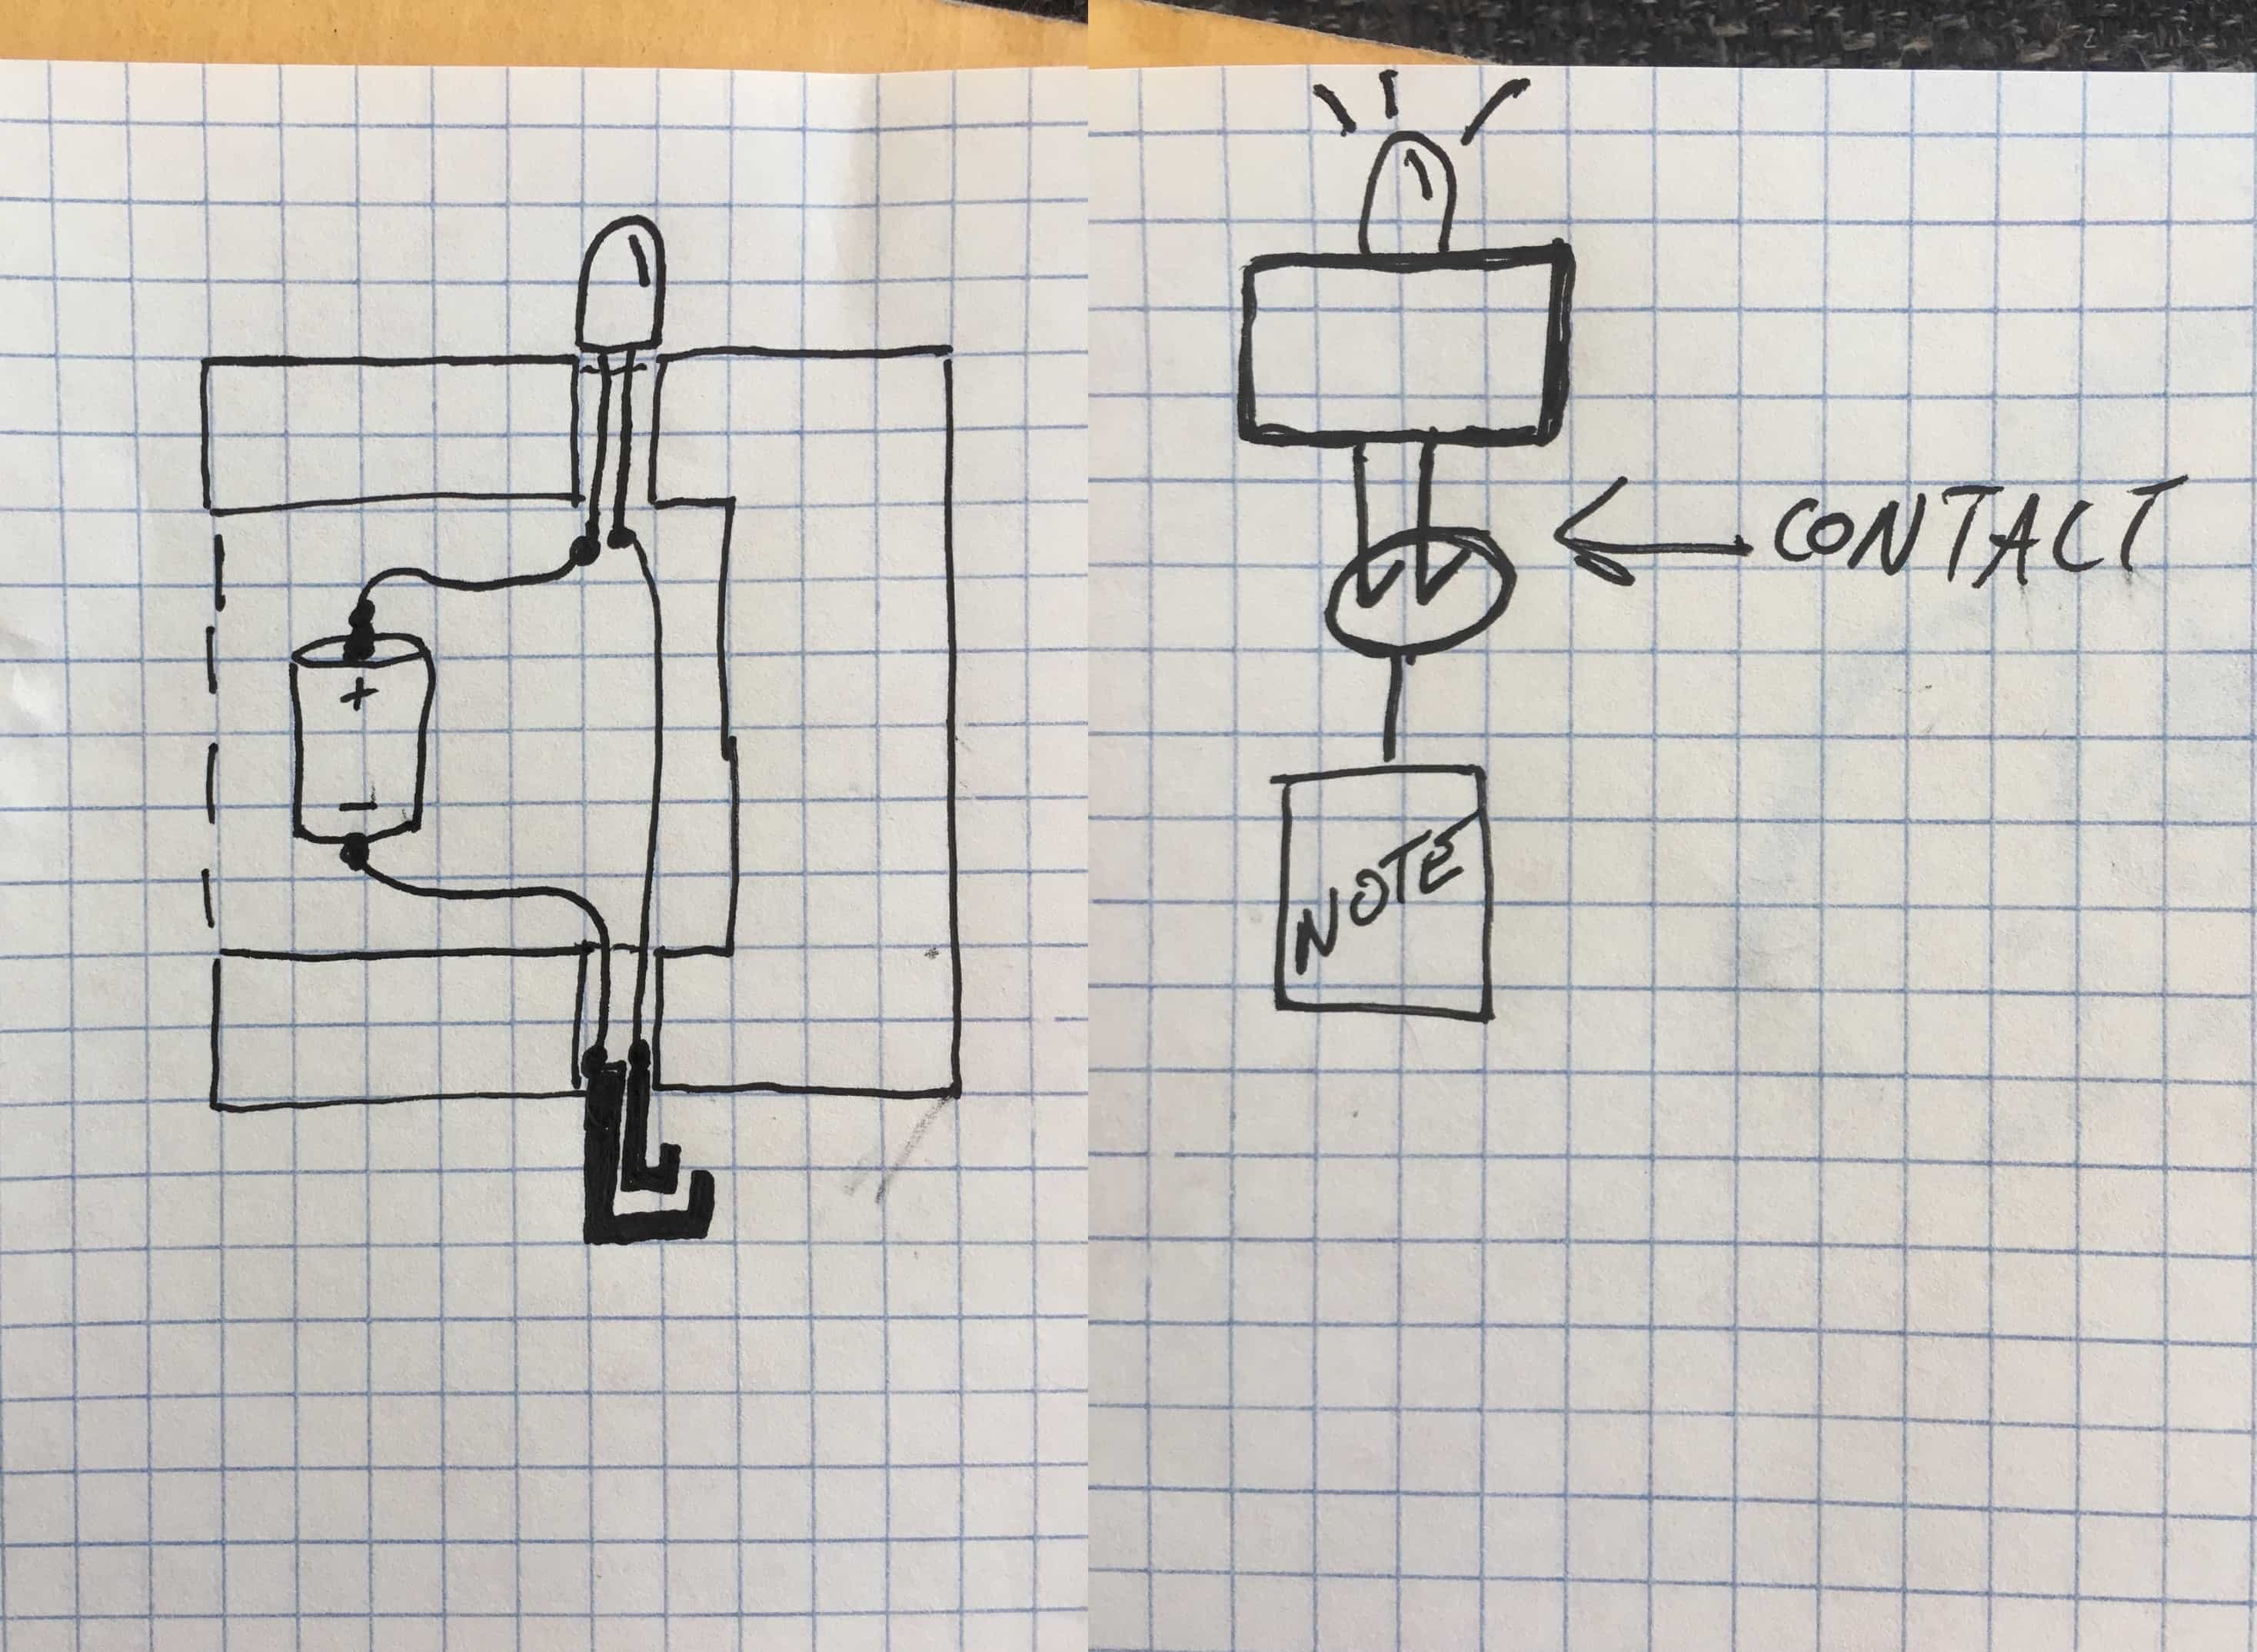 +
−
CONTACT
NOTE